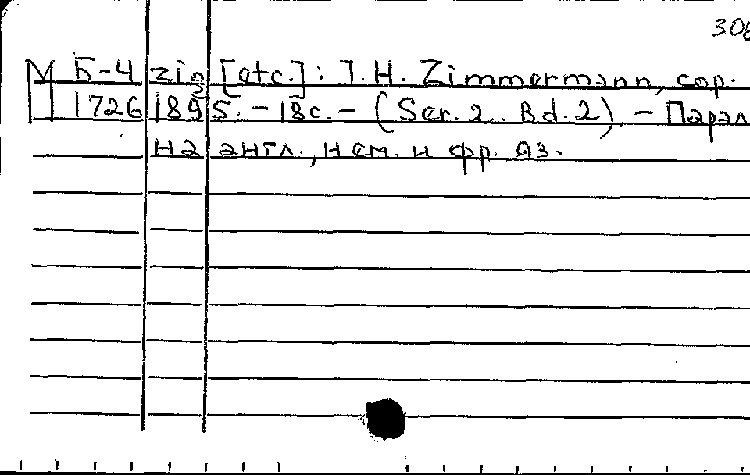 306
М Б-4 zig [etc.] : J. H. Zimmermann, cop.
1726 1895. - 18 с. - (Ser. 2. Bd. 2). - Парал
на англ., нем. и фр. яз.